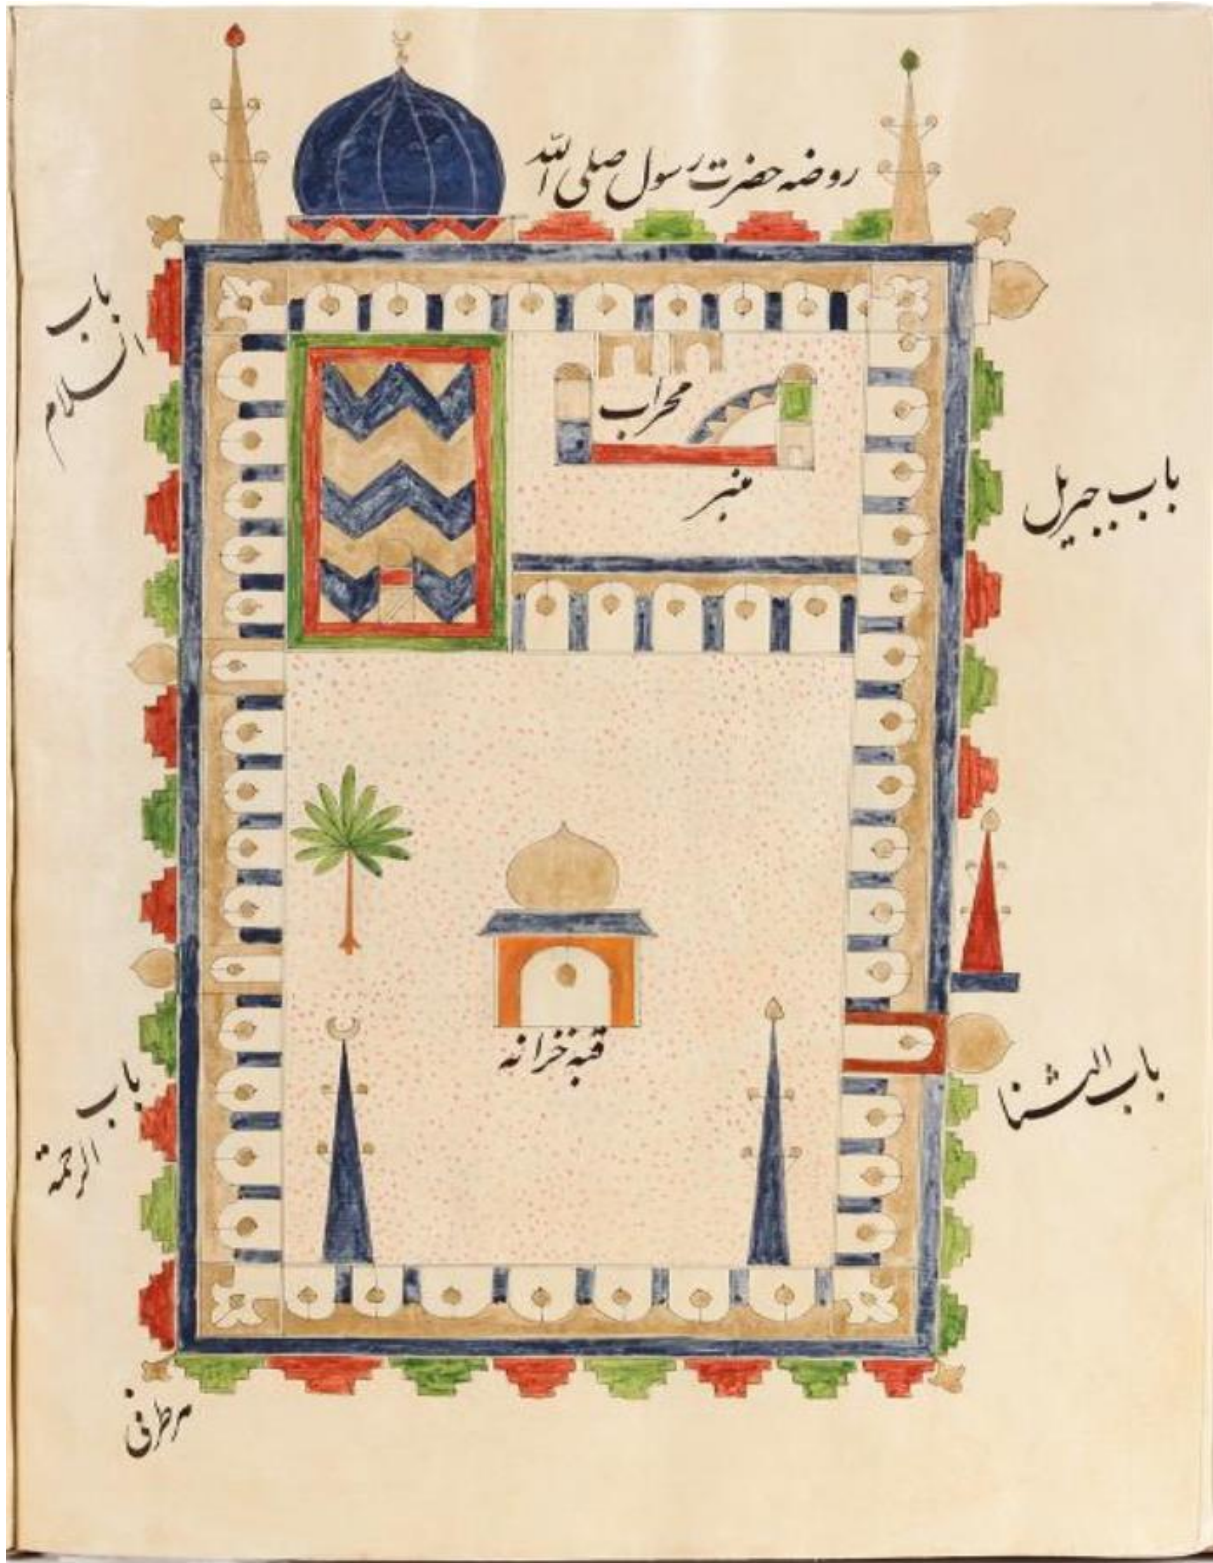 روضه حضرت رسول صلی الله
باب
السلام
محراب
منبر
باب جبریل
قبه خزانه
باب النسا
باب
الرحمة